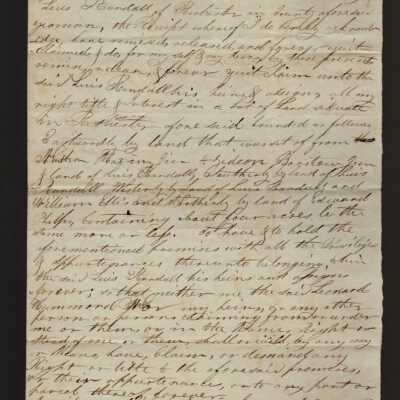 Luis Kendall of Rochester in County aforesaid
yeoman, the receipt whereof I do hereby acknow
ledge, have remised released and forever quit
Claimed & do, for myself & my heirs by these presents
remise, release, & forever quit Claim unto the
said Luis Kendall his heirs & assigns all my
right title & interest in a lot of land situate
in Rochester aforesaid bounded as follows
Eastwardly by land that was set of from the
Nathan & Gideon Barstow Jun
& land of Luis Kendall, Southerly by land of
Kendall Westerly by land of Luis Kendall and
William Ellis and Northerly by land of Edward
Containing about four acres be the
same more or less. To have & to hold the
aforementioned premises with all the privileges
& appurtenances thereunto belonging to him
the said Luis Kendall his heirs and assigns
forever; so that neither me the said Leonard
Hammond nor my heirs, or any other
person or persons claiming from or under
me or them, or in the name, right or
stead of me or them, shall or will by any way
or means, have, claim, or demand any
Right or title to the aforesaid premises,
or their appurtenances, or to any part or
parcel thereof forever.